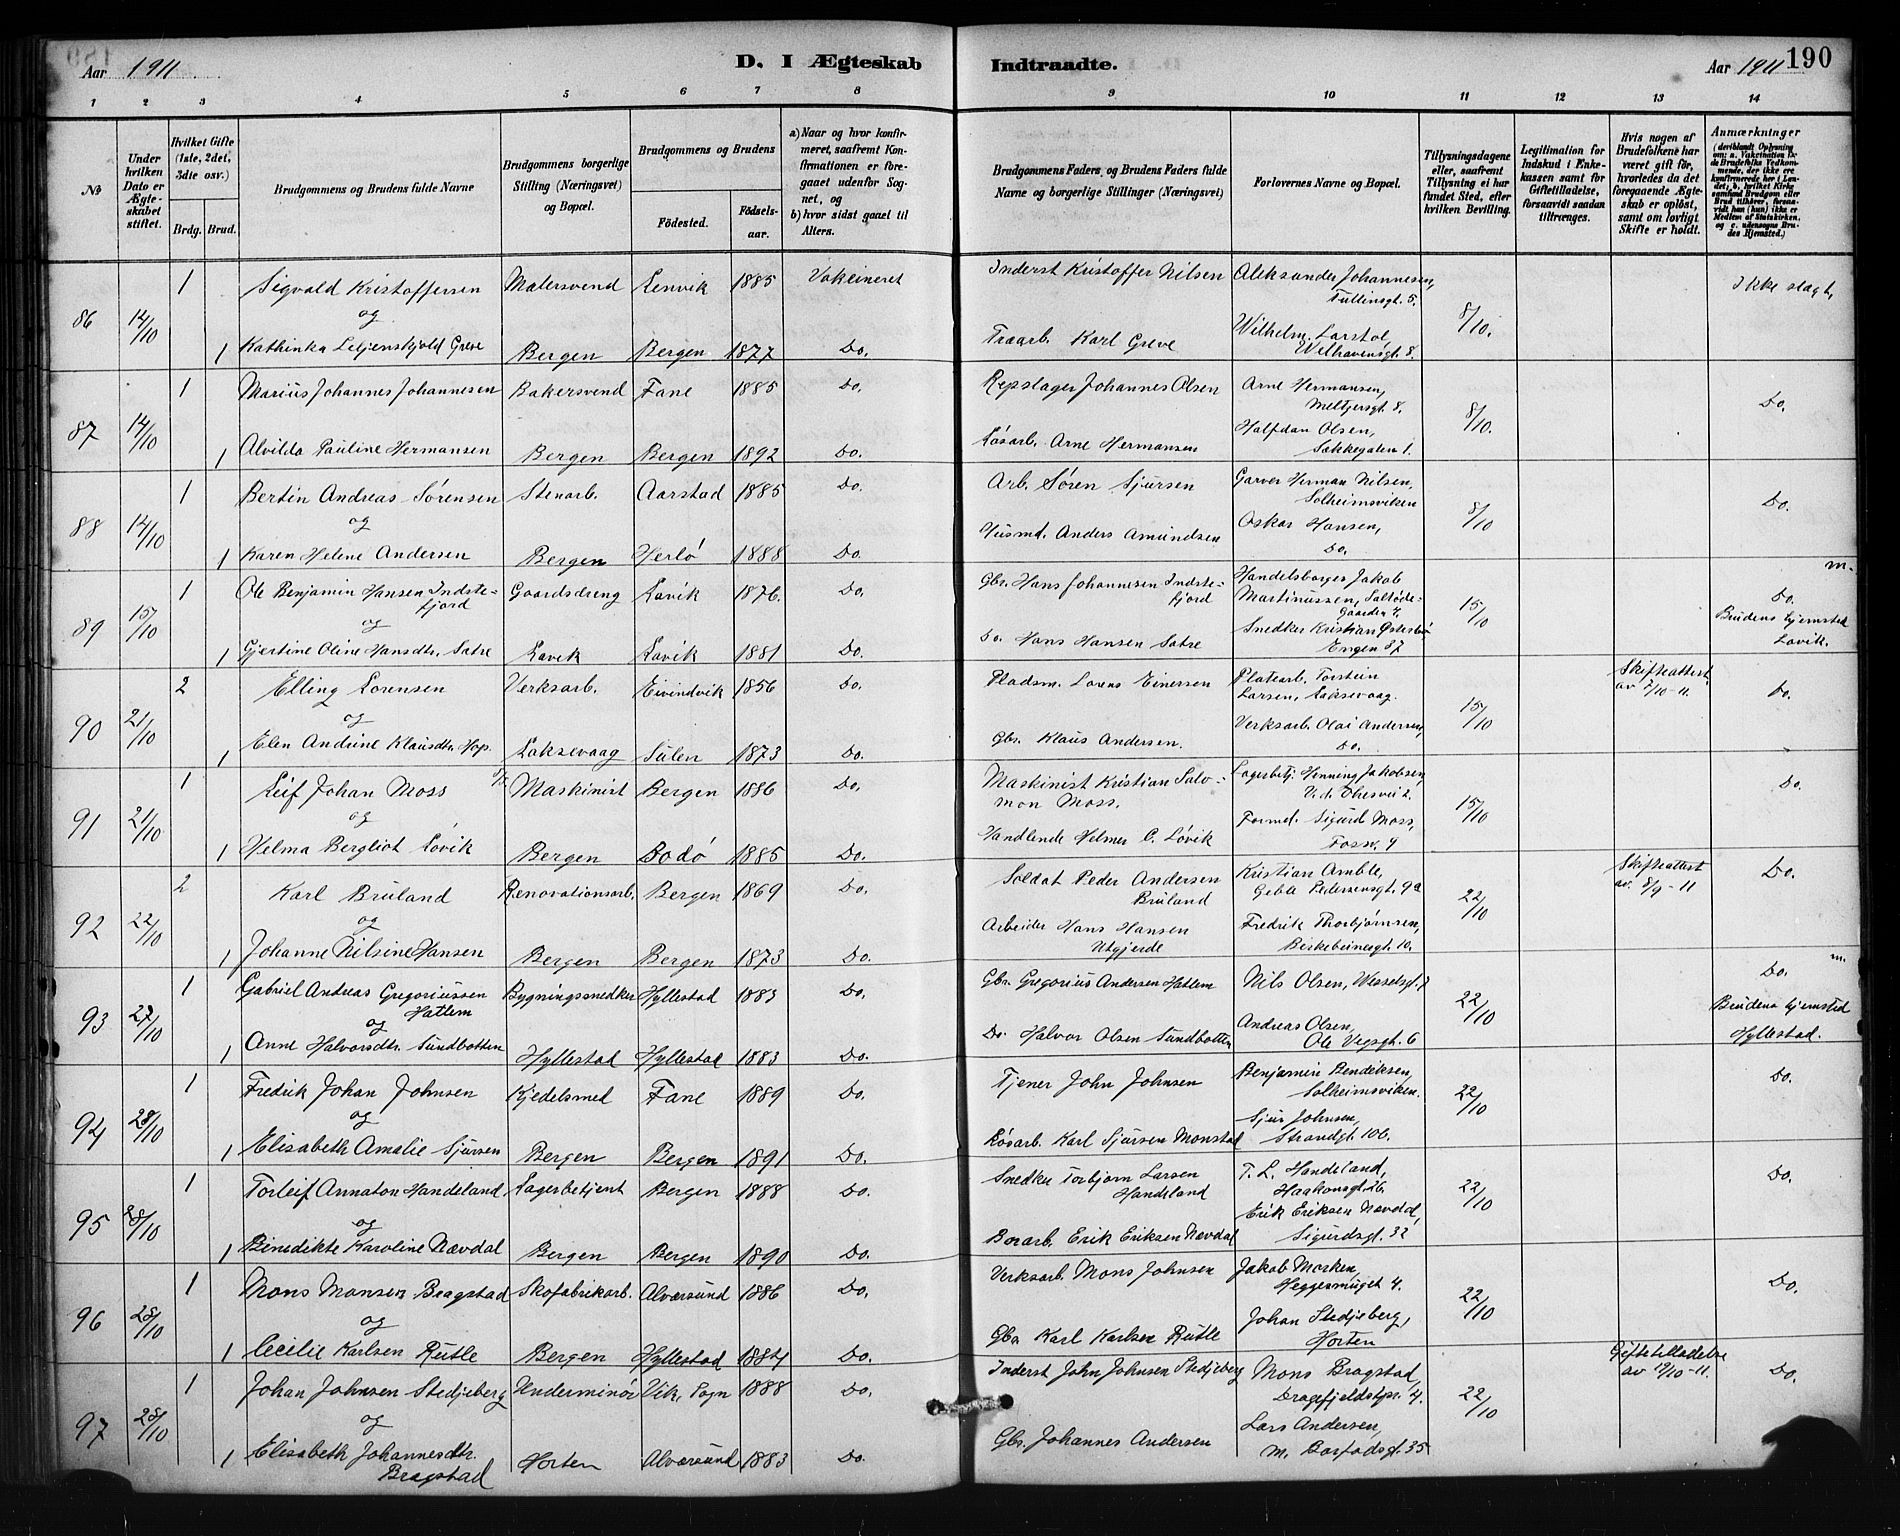 Aar 1911
D. I Ægteskab Indtraadte.
Aar 1911 190
1 2 3 4 5 6 7 8 9 10 11 12 13 14
No
Under hvilken Dato er Ægteskabet stiftet.
Hvilket Gifte (1ste, 2det, 3die osv.)
Brdg. Brud.
Brudgommens og Brudens fulde Navne
Brudgommens borgerlige Stilling (Næringsvei) og Bopæl.
Brudgommens og Brudens
Fødested. Fødselsaar.
a) Naar og hvor konfirmeret, saafremt Konfirmationen er foregaaet udenfor Sognet, og
b) hvor sidst gaaet til Alters.
Brudgommens Faders, og Brudens Faders fulde Navne og borgerlige Stillinger (Næringsvei)
Forlovernes Navne og Bopæl.
Tillysningsdagene eller, saafremt Tillysning ei har fundet Sted, efter hvilken Bevilling.
Legitimation for Indskud i Ænkekassen samt for Giftetilladelse, forsaavidt saadan tiltrænges.
Hvis nogen af Brudefolkene har været gift før, hvorledes da det foregaaende Ægteskab er opløst, samt om lovligt Skifte er holdt.
Anmærkninger (deriblandt Oplysning om: a. Vaksination for de Brudefolks Vedkommende, der ikke ere konfirmerede her i Landet, b. hvilket Kirkesamfund Brudgom eller Brud tilhører, forsaavidt han (hun) ikke er Medlem af Statskirken, og c. udensogns Brudes Hjemsted.)
86 14/10 1 Sigvald Kristoffersen Malersvend Lenvik 1885 Vakcineret Inderst Kristoffer Nilsen Aleksander Johannesen, Tullinsgt. 5. 8/10. Ikke slægt,
og
1 Kathinka Leljenskjold Greve Bergen Bergen 1877 Do. Traarb. Karl Greve Wilhelm Larstol, Welhavensgt. 8.
87 14/10 1 Marius Johannes Johannesen Bakersvend Fane 1885 Do. Repslager Johannes Olsen Arne Hermansen, Meltjersgt. 8. 8/10. Do.
1 Alvilda Pauline Hermansen Bergen Bergen 1892 Do. Løsarb. Arne Hermansen Halfdan Olsen, Sækkegaten 1.
88 14/10 1 Bertin Andreas Sørensen Stenarb. Aarstad 1885 Do. Arb. Søren Sjursen Garver Herman Nilsen, Solheimsviken 8/10 Do.
og
1 Karen Helene Andersen Bergen Herlø 1888 Do. Husmd. Anders Amundsen Oskar Hansen, Do.
89 15/10 1 Ole Benjamin Hansen Indstefjord Gaardsdreng Lavik 1876. Do. Gbr. Hans Johannesen Indstefjord Handelsborger Jakob Martinussen, Saltødegaarden 4. 15/10 m. Do. Brudens hjemsted Lavik.
og
1 Gjertine Oline Hansdtr. Satre Lavik Lavik 1881 Do. Do. Hans Hansen Satre Snedker Kristian Østerbø Engen 37
90 21/10 2 Elling Lorensen Verksarb. Eivindvik 1856 Do. Pladsm. Lorens Einersen Platearb. Torstein Larsen, Laksevaag. 15/10 Skifteattest av 7/10-11. Do.
og
1 Elen Andrine Klausdtr. Hop. Laksevaag Sulen 1873 Do. Gbr. Klaus Andersen. Verksarb. Olai Andersen, Do.
91 21/10 1 Leif Johan Moss Maskinist Bergen 1886 Do. Maskinist Kristian Salomon Moss. Lagerbetj. Henning Jakobsen, 15/10 Do.
og
1 Helma Bergliot Løvik Bergen Bodø 1885 Do. Handlende Helmer C. Løvik Formd. Sigurd Moss, Fossv. 9
92 22/10 2 Karl Bruland Renovationsarb. Bergen 1869 Do. Soldat Peder Andersen Bruland Kristian Amble, Geble Pedersensgt. 9a 22/10 Skifteattest av. 8/9-11 Do.
og
1 Johanne Nilsine Hansen Bergen Bergen 1873 Do. Arbeider Hans Hansen Utgjerde Fredrik Thorbjørnsen, Birkebeinesgt. 10.
93 27/10 1 Gabriel Andreas Gregoriussen Hatlem Bygningssnedker Hyllestad 1883 Do. Gbr. Gregorius Andersen Hatlem Nils Olsen, Wesselsgt. 7 22/10 m. Do. Brudens hjemsted Hyllestad.
og
1 Anne Halvorsdtr. Sundbotten Hyllestad Hyllestad 1883 Do. Do. Halvor Olsen Sundbotten Andreas Olsen, Ole Viggt. 6
94 28/10 1 Fredrik Johan Johnsen Kjedelsmed Fane 1889 Do. Tjener John Johnsen Benjamin Bendiksen, Solheimsviken. 22/10 Do.
og
1 Elisabeth Amalie Sjursen Bergen Bergen 1891 Do. Løsarb. Karl Sjursen Monstad Sjur Johnsen, Strandgt. 106.
95 28/10 1 Torleif Annaton Handeland Lagerbetjent Bergen 1888 Do. Snedker Torbjørn Larsen Handeland T. L. Handeland, Haakonsgt. 26. 22/10 Do.
og
1 Benedikte Karoline Nævdal Bergen Bergen 1890 Do. Borarb. Erik Eriksen Nævdal Erik Eriksen Nævdal, Sigurdsgt. 32
96 28/10 1 Mons Monsen Bragstad Skofabrikarb. Alversund 1886 Do. Verksarb. Mons Johnsen Jakob Morken, Heggesmuget 4. 22/10 Do.
og
1 Cecilie Karlsen Rutle Bergen Hyllestad 1884 Do. Gbr. Karl Karlsen Rutle Johan Stedjeberg, Horten
97 28/10 1 Johan Johnsen Stedjeberg Underminør Vik, Sogn 1888 Do. Inderst John Johnsen Stedjeberg Mons Bragstad, Dragefjeldstpr. 4. 22/10 Giftetilladelse av 12/10-11. Do.
og
1 Elisabeth Johannesdtr. Bragstad Horten Alversund 1883 Do. Gbr. Johannes Andersen Lars Andersen, M. Barfodsgt. 35